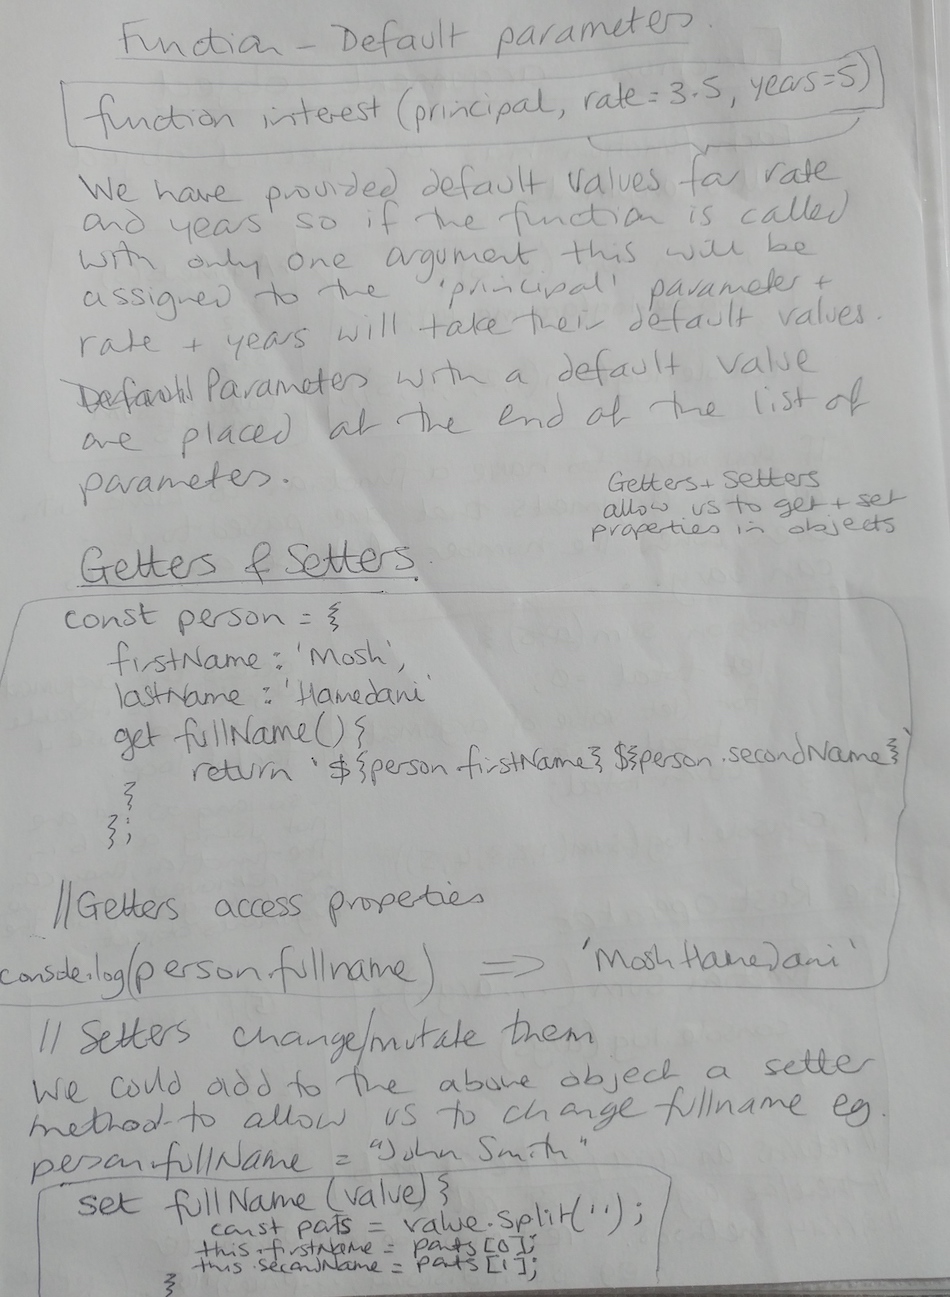 Function - Default parameters.
function interest (principal, rate = 3.5, years=5)
We have provided default values for rate
and years so if the function is called
with only one argument this will be
assigned to the 'principal' parameter +
rate + years will take their default values.
Default Parameters with a default value
are placed at the end of the list of
parameters.
Getters + Setters
allow us to get + set
properties in objects
Getters & Setters.
const person = {
firstName : 'Mosh',
lastName : 'Hamedani'
get fullName() {
return `${person.firstName} ${person.secondName}`
}
};
//Getters access properties
console.log(person.fullname) => 'Mosh Hamedani'
// Setters change/mutate them
We could add to the above object a setter
method to allow us to change fullname eg.
person.fullName = "John Smith"
set fullName (value) {
const parts = value.split('');
this.firstName = parts[0];
this.secondName = parts[1];
}